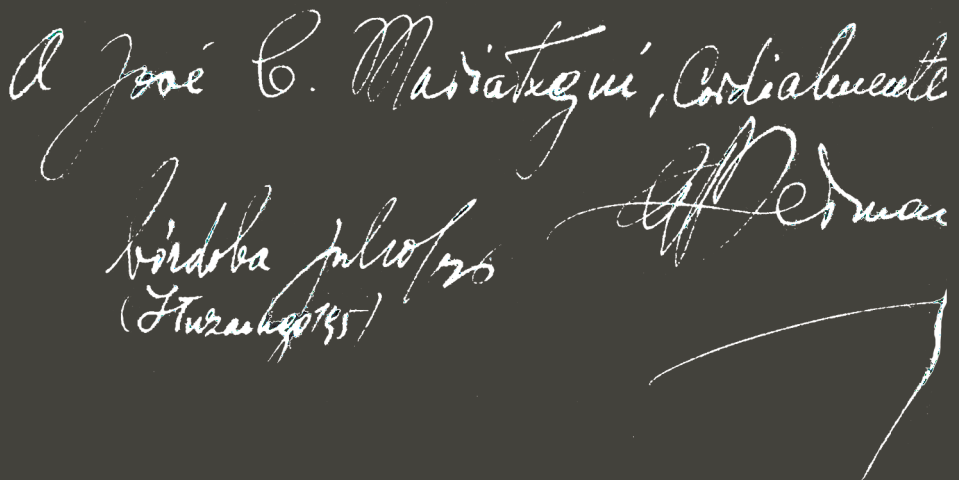 A José C. Mariategui, Cordialmente
GBerman
Córdoba julio
(Ituzaingó 195)